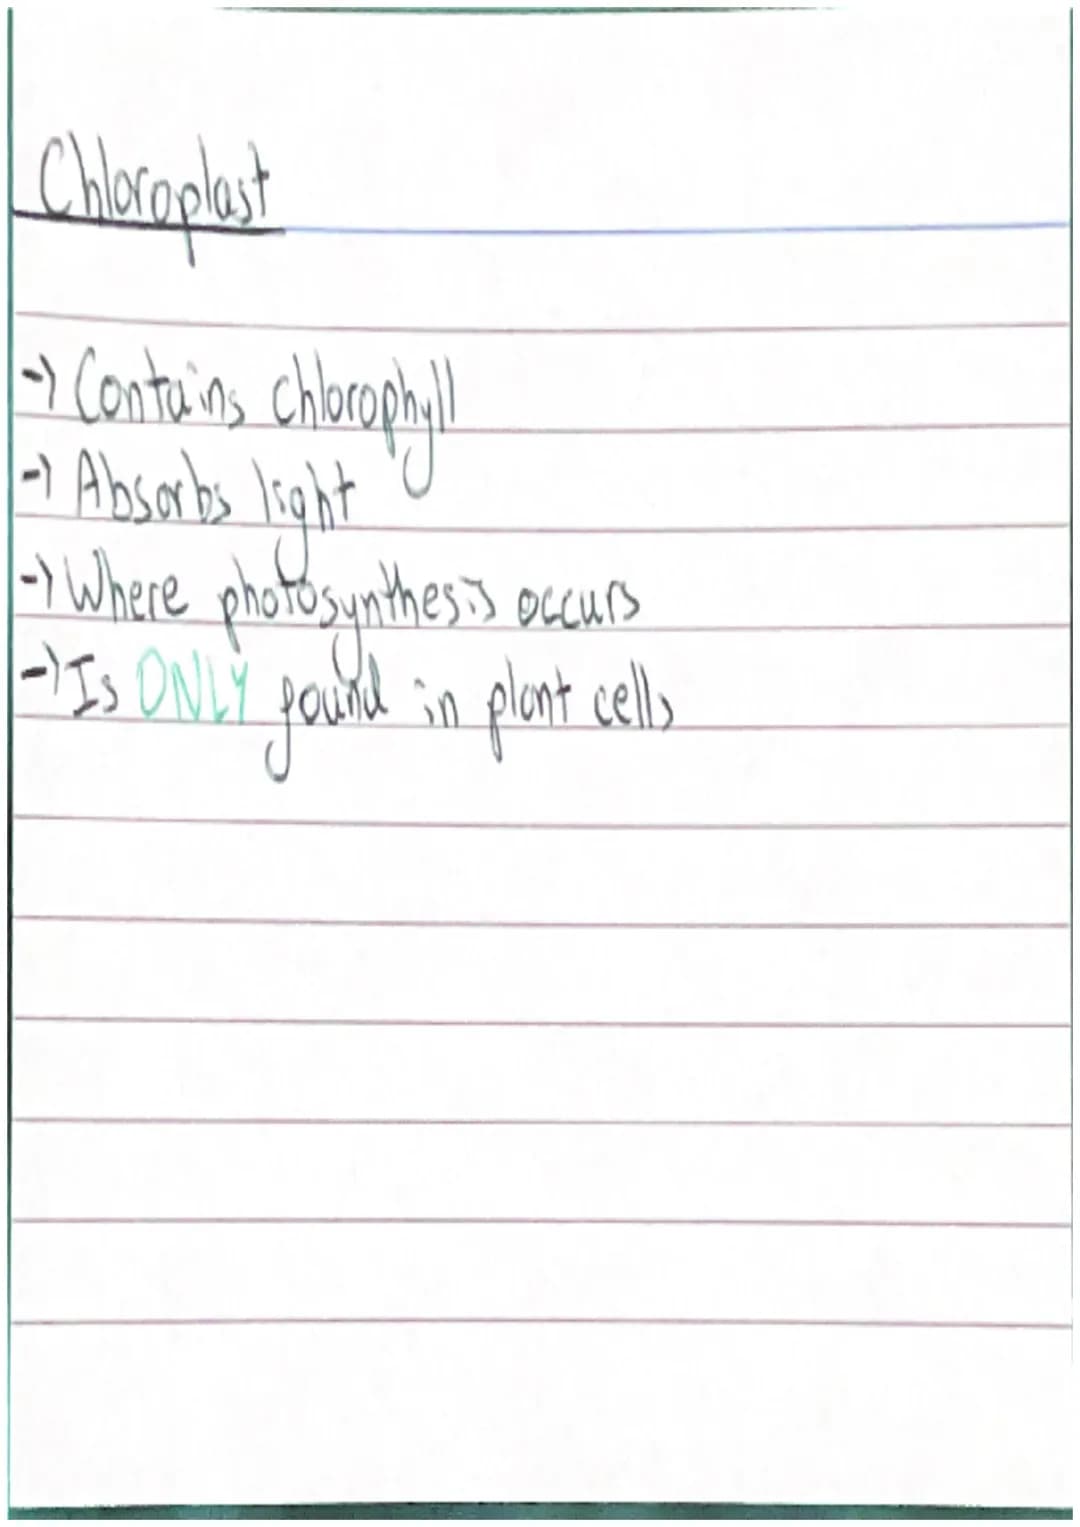 Chloroplast
-> Contains chlorophyll
-> Absorbs light
-> Where photosynthesis occurs
-> Is ONLY found in plant cells